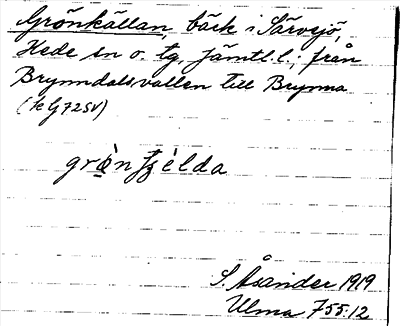 Grönkällan, bäck i Särvsjö,
Hede sn o. tg, Jämtl. l.; från
Brynndalsvallen till Brynna
(kG72SV)
S. Åsander 1919
Ulma 755:12